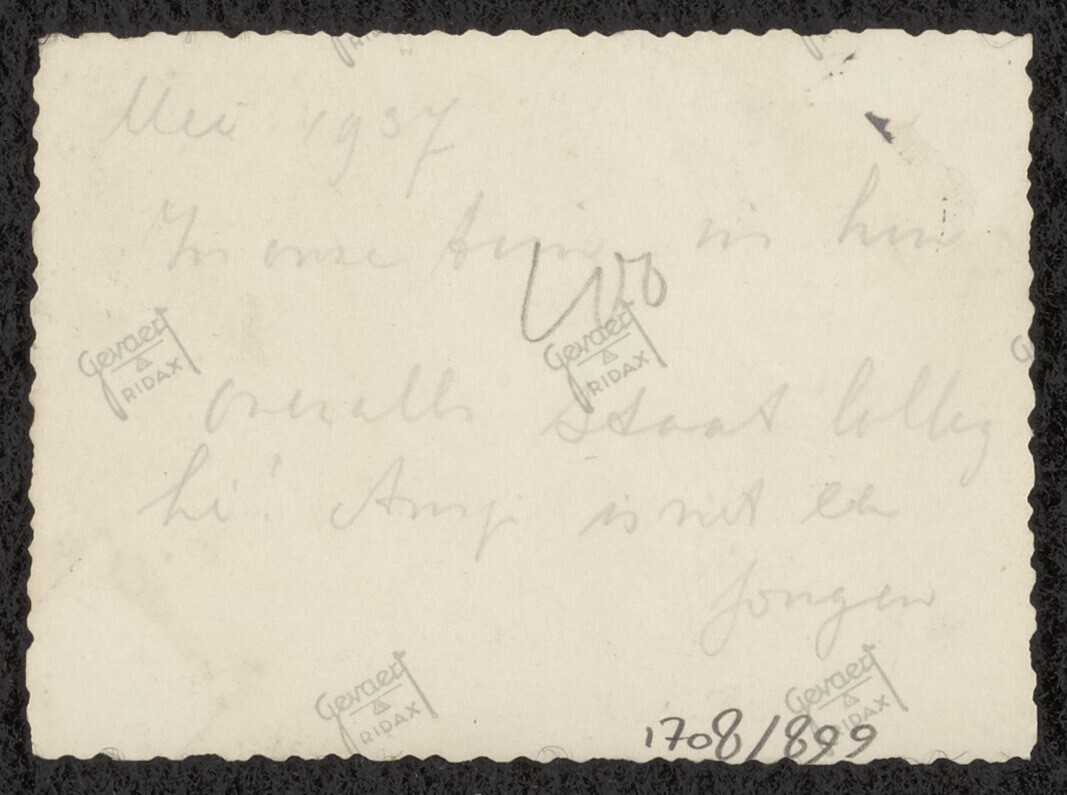 Mei 1937
In onze tuin in hun
overalls staat lollig
hè! Ansje is niet een
jongen
Gevaert
RIDAX
Gevaert
RIDAX
Gevaert
RIDAX
Gevaert
RIDAX
1708/899